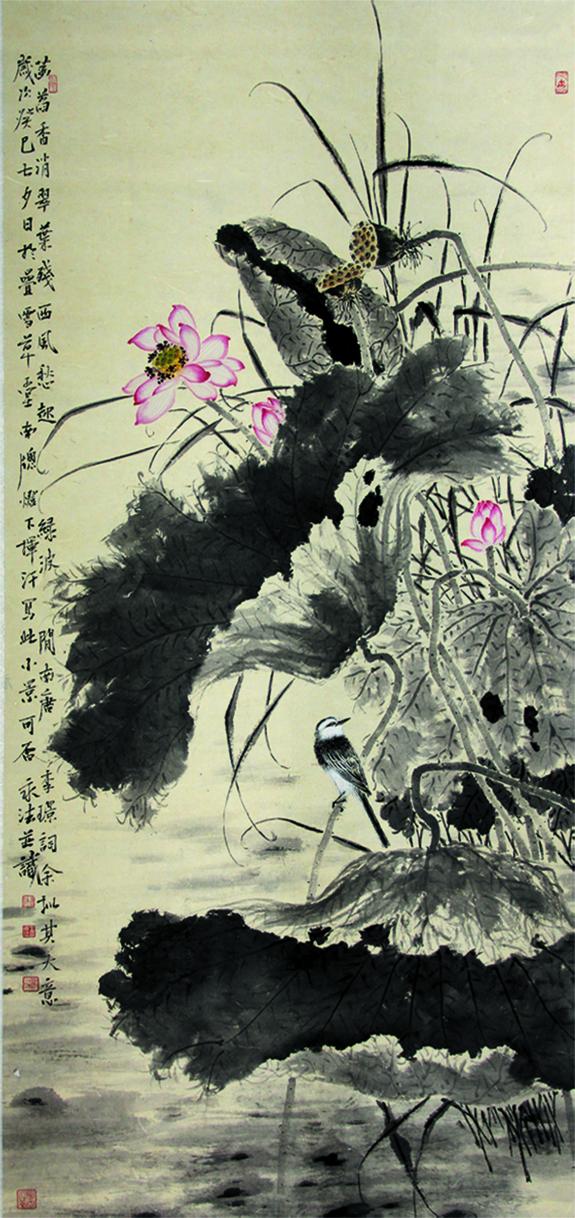 菡萏香消翠葉殘西風愁起綠波間南唐李璟詞余拟其大意
歲次癸巳七夕日於疊雪草堂南牕燈下揮汗寫此小景可否永法並識